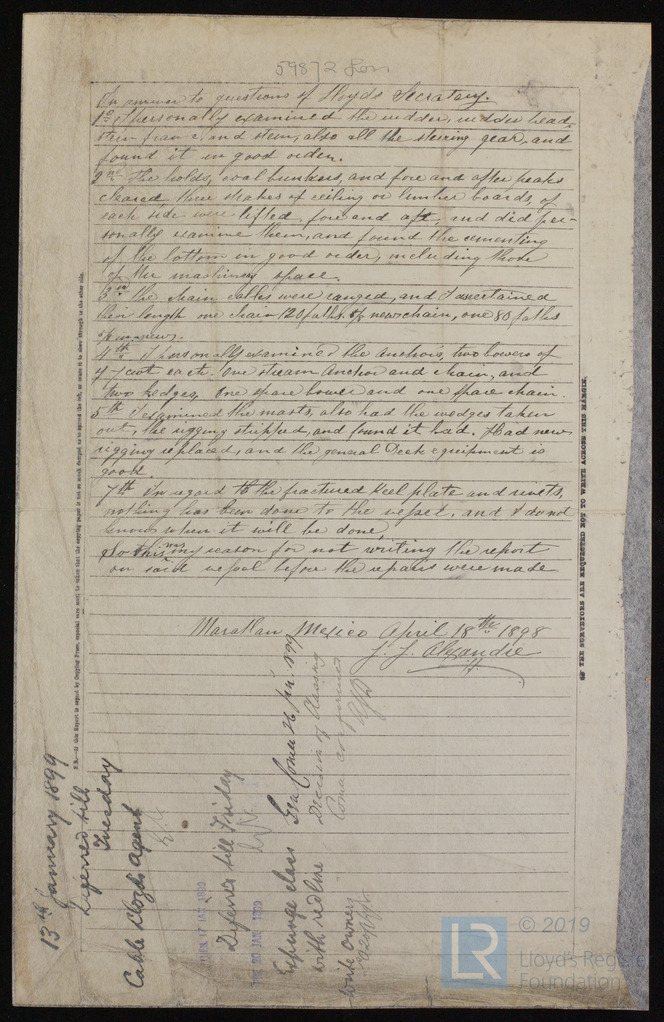 59872 Lon
In answer to questions of Lloyds Secratary.
1st I personally examined the rudder, rudder head,
stern frame and stem, also all the steering gear, and
found it in good order.
2nd The holds, coal bunkers, and fore and after peaks
cleared, three strakes of ceiling or limber boards, of
each side were lifted, fore and aft, and did per-
sonally examine them, and found the cementing
of the bottom in good order, including those
of the machinery space.
3rd the chain cables were ranged, and I ascertained
their length one chain 120 faths new chain, one 80 faths
4th I personally examined the anchors, two bowers of
cwt each. One stream anchor and chain, and
two kedges, One spare bower and one spare chain.
5th I examined the masts, also had the wedges taken
out, the rigging stripped, and found it bad. Had new
rigging replaced, and the general Deck equipment is
good.
7th In regard to the fractured keel plate and rivets,
nothing has been done to the vessel, and I do not
know when it will be done,
So this was my reason for not writing the report
on said vessel before the repairs were made
Mazatlan Mexico April 18th 1898
N.B.—If this Report is copied by Copying Press, especial care must be taken that the copying paper is not so much damped as to
OF THE SURVEYORS ARE REQUESTED NOT TO WRITE ACROSS THIS MARGIN.
13th January 1899
Deferred till
Tuesday
Cable Lloyds Agent
TUES. 17 JAN 1899
Deferred till Friday
20 JAN 1899
Expunge class
with red line
Write owners
Decision of Classing
Come confirmed
© 2019
LR
Lloyd's Register
Foundation